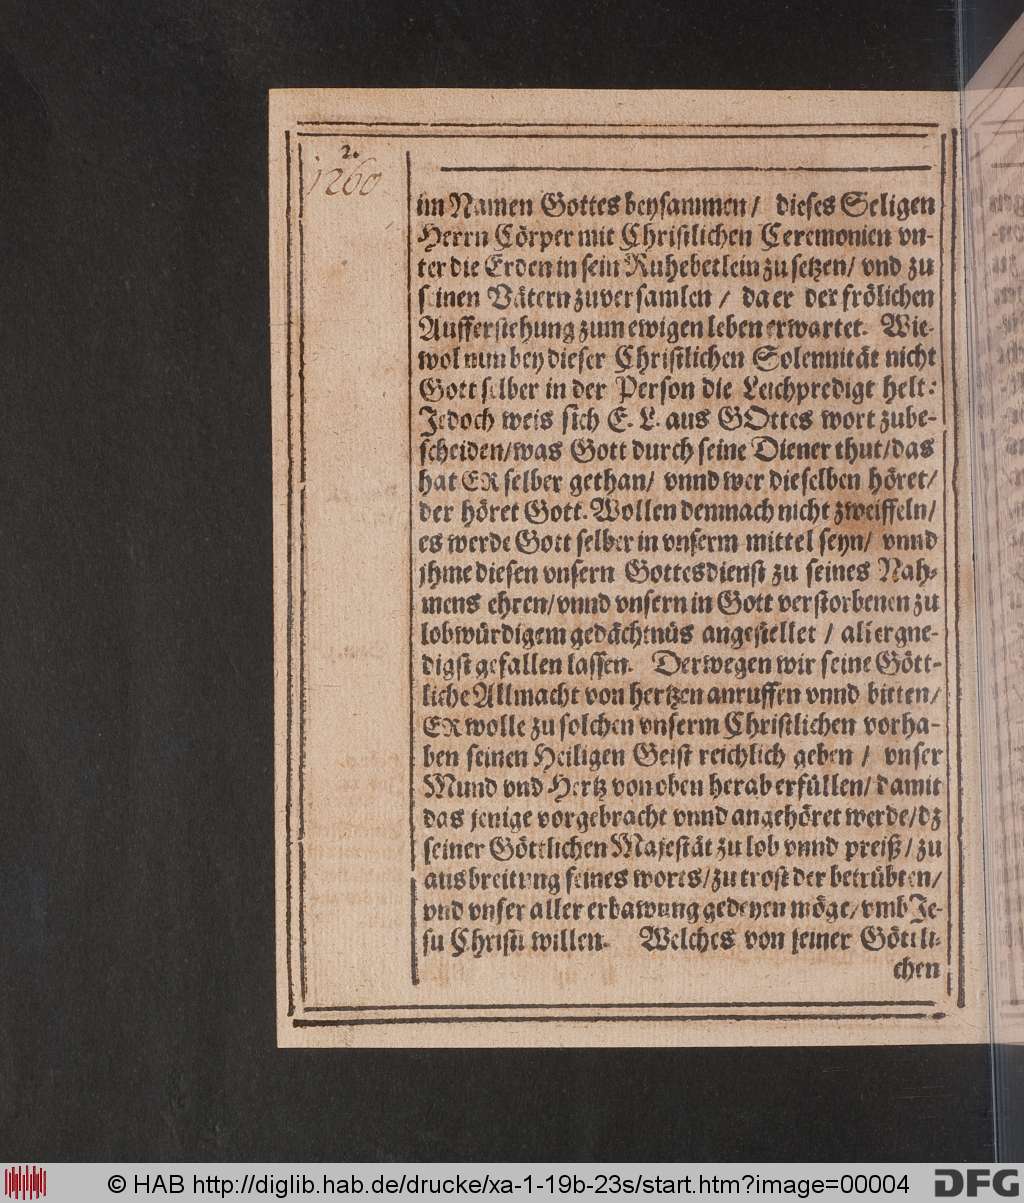 2.
1260
im Namen Gottes beysammen / dieses Seligen
Herrn Cörper mit Christlichen Ceremonien vn-
ter die Erden in sein Ruhebetlein zu setzen / vnd zu
seinen Vätern zuversamlen / da er der frölichen
Aufferstehung zum ewigen leben erwartet. Wie-
wol nun bey dieser Christlichen Solennität nicht
Gott selber in der Person die Leichpredigt helt:
Jedoch weis sich E. L. aus GOttes wort zube-
scheiden / was Gott durch seine Diener thut / das
hat ER selber gethan / vnnd wer dieselben höret /
der höret Gott. Wollen demnach nicht zweiffeln /
es werde Gott selber in vnserm mittel seyn / vnnd
jhme diesen vnsern Gottesdienst zu seines Nah-
mens ehren / vnnd vnsern in Gott verstorbenen zu
lobwürdigem gedächtnüs angestellet / allergne-
digst gefallen lassen. Derwegen wir seine Gött-
liche Allmacht von hertzen anruffen vnnd bitten /
ER wolle zu solchen vnserm Christlichen vorha-
ben seinen Heiligen Geist reichlich geben / vnser
Mund vnd Hertz von oben herab erfüllen / damit
das jenige vorgebracht vnnd angehöret werde / dz
seiner Göttlichen Majestät zu lob vnnd preiß / zu
ausbreitung seines worts / zu trost der betrübten /
vnd vnser aller erbawung gedeyen möge / vmb Je-
su Christi willen. Welches von seiner Göttli-
chen
© HAB http://diglib.hab.de/drucke/xa-1-19b-23s/start.htm?image=00004
DFG